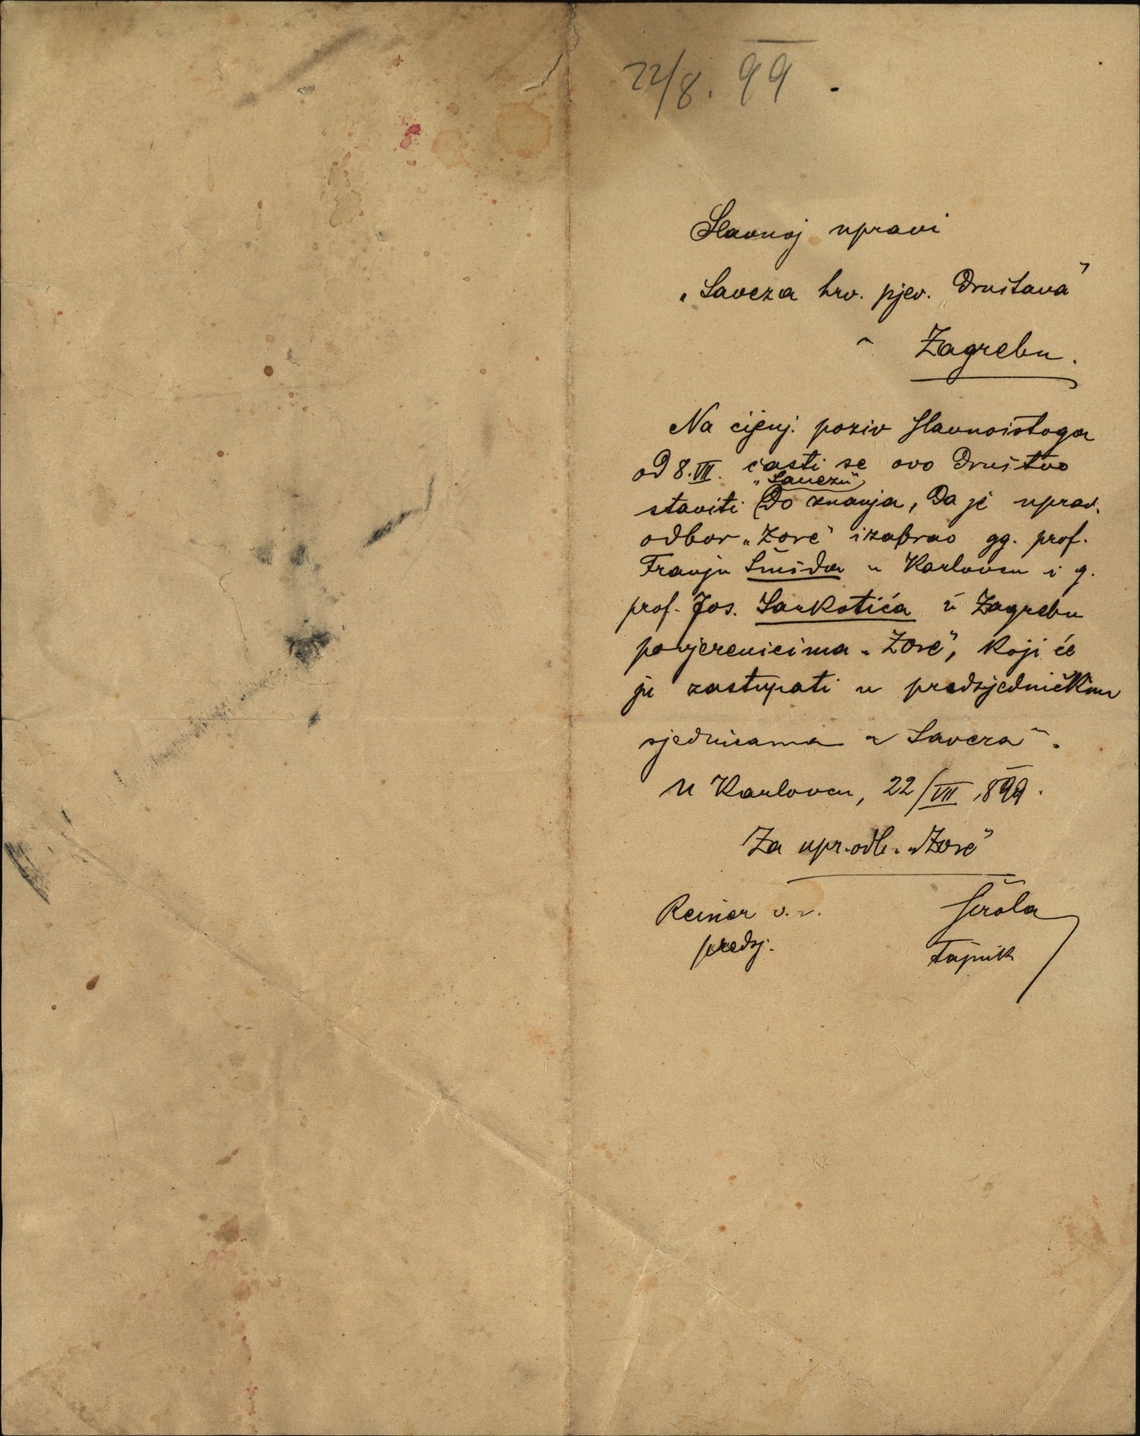 22/8. 99.
Slavnoj upravi
„Saveza hrv. pjev. društava”
Zagrebu.
Na cijenj. poziv Slavnoistoga
od 8. VII. časti se ovo društvo
„Savezu”
staviti do znanja, da je uprav.
odbor „Zore” izabrao gg. prof.
Franju Šmida u Karlovcu i g.
prof. Jos. Sarkotića u Zagrebu
povjerenicima „Zore”, koji će
ju zastupati u predsjedničkim
sjednicama „Saveza”.
U Karlovcu, 22/VII 899.
Za upr. odb. „Zore”
Reiner v. r. Širola
predsj. tajnik